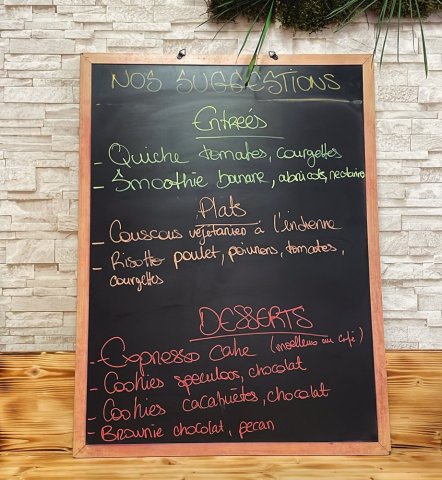 NOS SUGGESTIONS
Entreés
- Quiche tomates, courgettes
- Smoothie banane, abricots, nectarines
Plats
- Couscous végétarien à l'indienne
- Risotto poulet, poivrons, tomates,
courgettes
DESSERTS
- Expresso cake (moelleux au café)
- Cookies speculoos, chocolat
- Cookies cacahuètes, chocolat
- Brownie chocolat, pecan